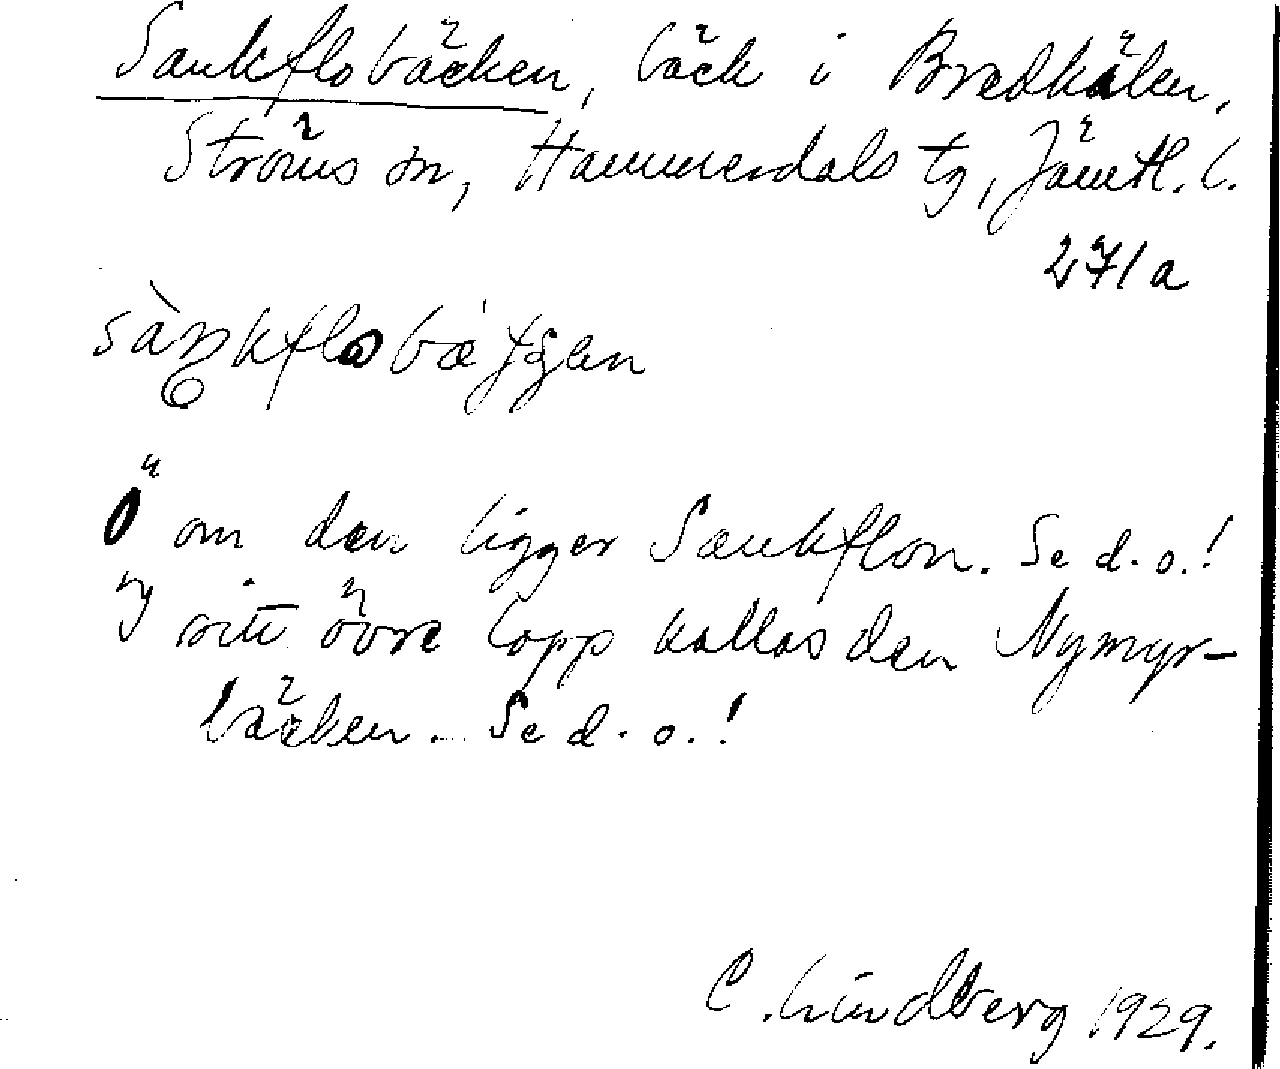 Sankflobäcken, bäck i Bredkälen,
Ströms sn, Hammerdals tg, Jämtl. l.
271a
Ö om den ligger Sankflon. Se d.o.!
I sitt övre lopp kallas den Nymyr-
bäcken. Se d.o.!
C. Lindberg 1929.